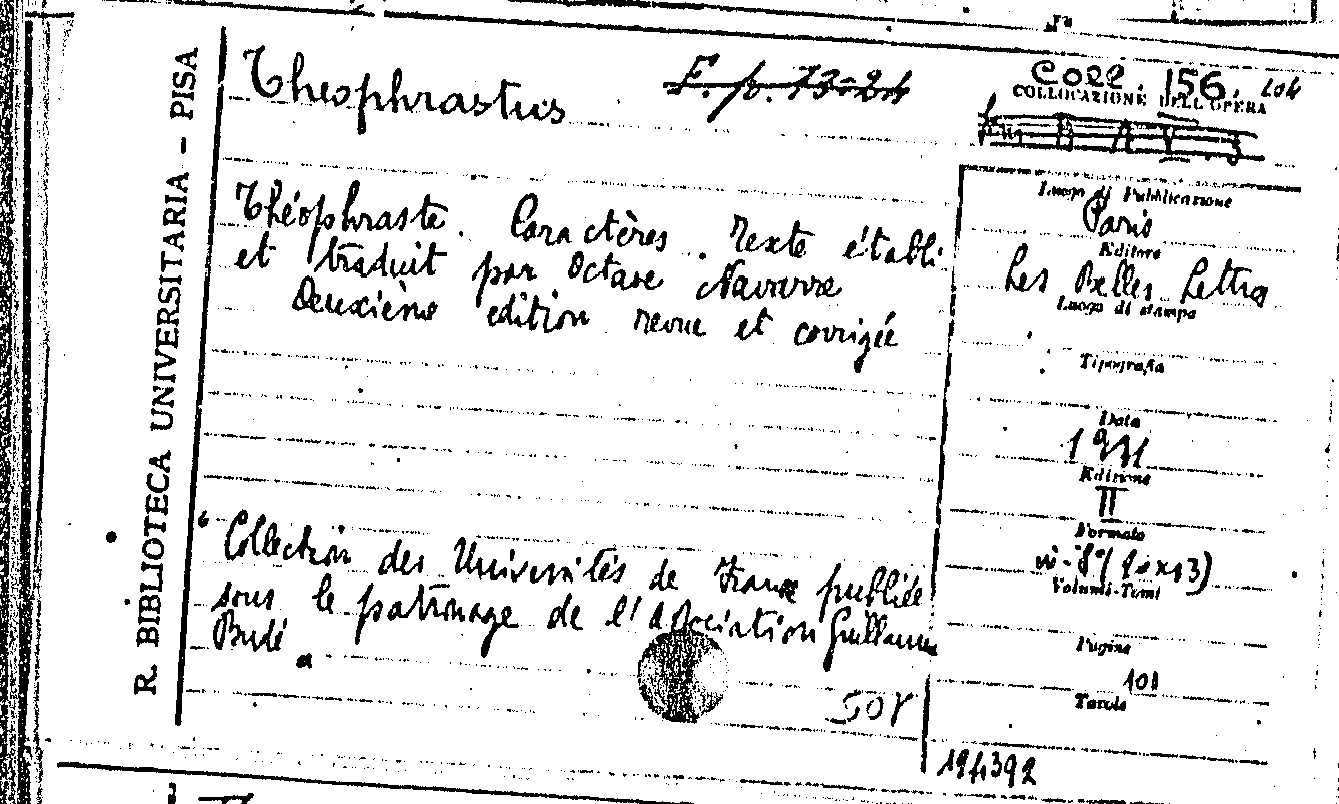 R. BIBLIOTECA UNIVERSITARIA - PISA
Theophrastus
F. p. 73-24
Coll. 156. 104
COLLOCAZIONE DELL'OPERA
Théophraste. Caractères. Texte établi
et traduit par Octave Navarre
Deuxième edition revue et corrigée
"Collection des Universités de France publiée
sous le patronage de l'Association Guillaume
Budé"
Luogo di Pubblicazione
Paris
Editore
Les Belles Lettres
Luogo di stampa
Tipografia
Data
1931
Edizione
II
Formato
in-8°(20x13)
Volumi-Tomi
Pagine
101
Tavole
194392